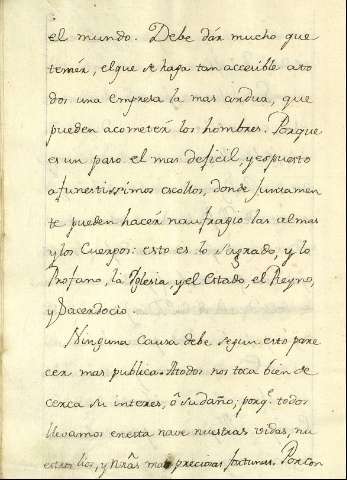 el mundo. Debe dár mucho que
temér, el que se haga tan accesible a to
dos una empresa la mas ardua, que
pueden acometér los hombres. Porque
es un paso el mas deficil, y espuesto
a funestissimos escollos, donde juntamen
te pueden hacér naufragio las almas
y los Cuerpos: esto es lo Sagrado, y lo
Profano, la Iglesia, y el Estado, el Reyno,
y Sacerdocio.
Ninguna Causa debe segun esto pare
cer mas publica. A todos nos toca bien de
cerca su interes, ô su daño, porq.e todos
llevamos en esta nave nuestras vidas, nu
estros hijos, y nrâs mas preciosas fortunas. Por con